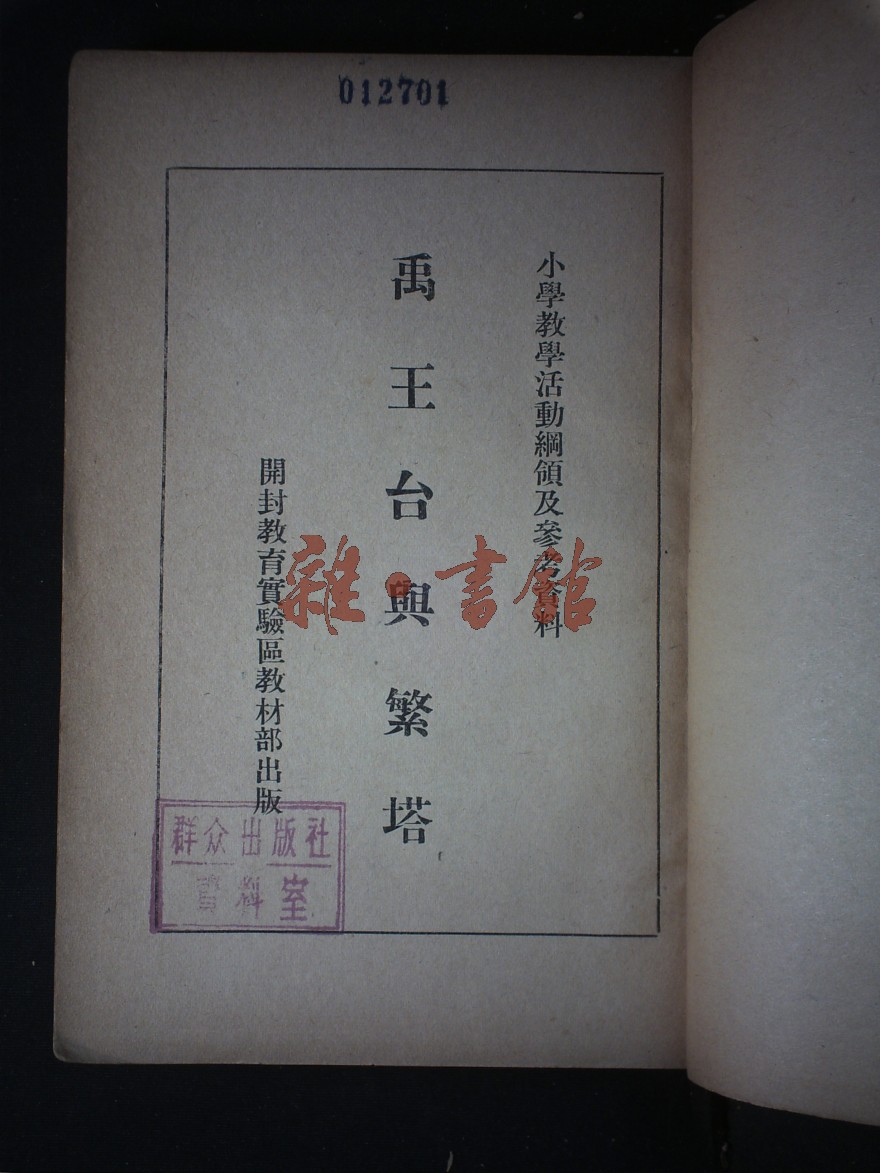 012701
小學教學活動綱領及參考資料
禹王台與繁塔
開封教育實驗區教材部出版
雜·書館
群众出版社
資料室